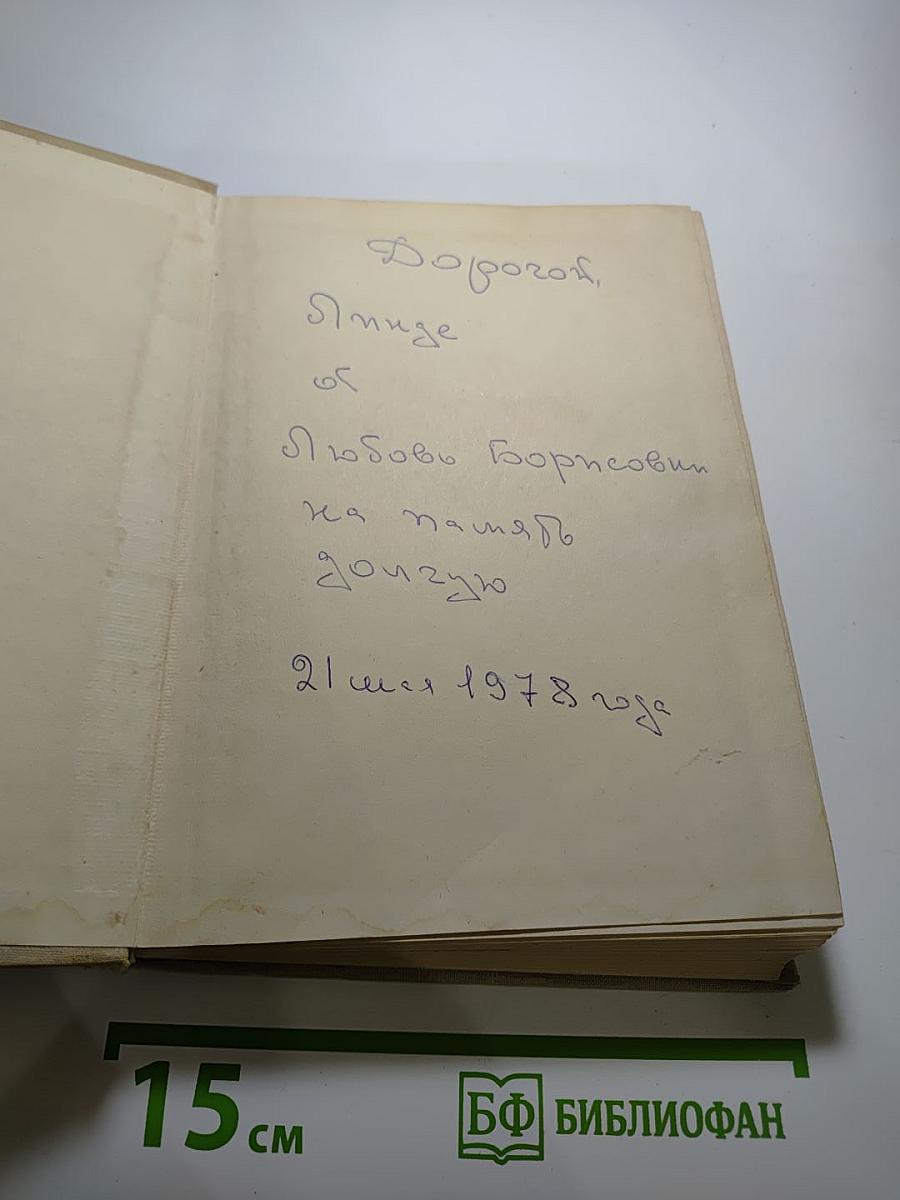 Дорогой,
Линде
от
Любовь Борисовны
на память
долгую
21 мая 1978 года
15 см
БФ БИБЛИОФАН